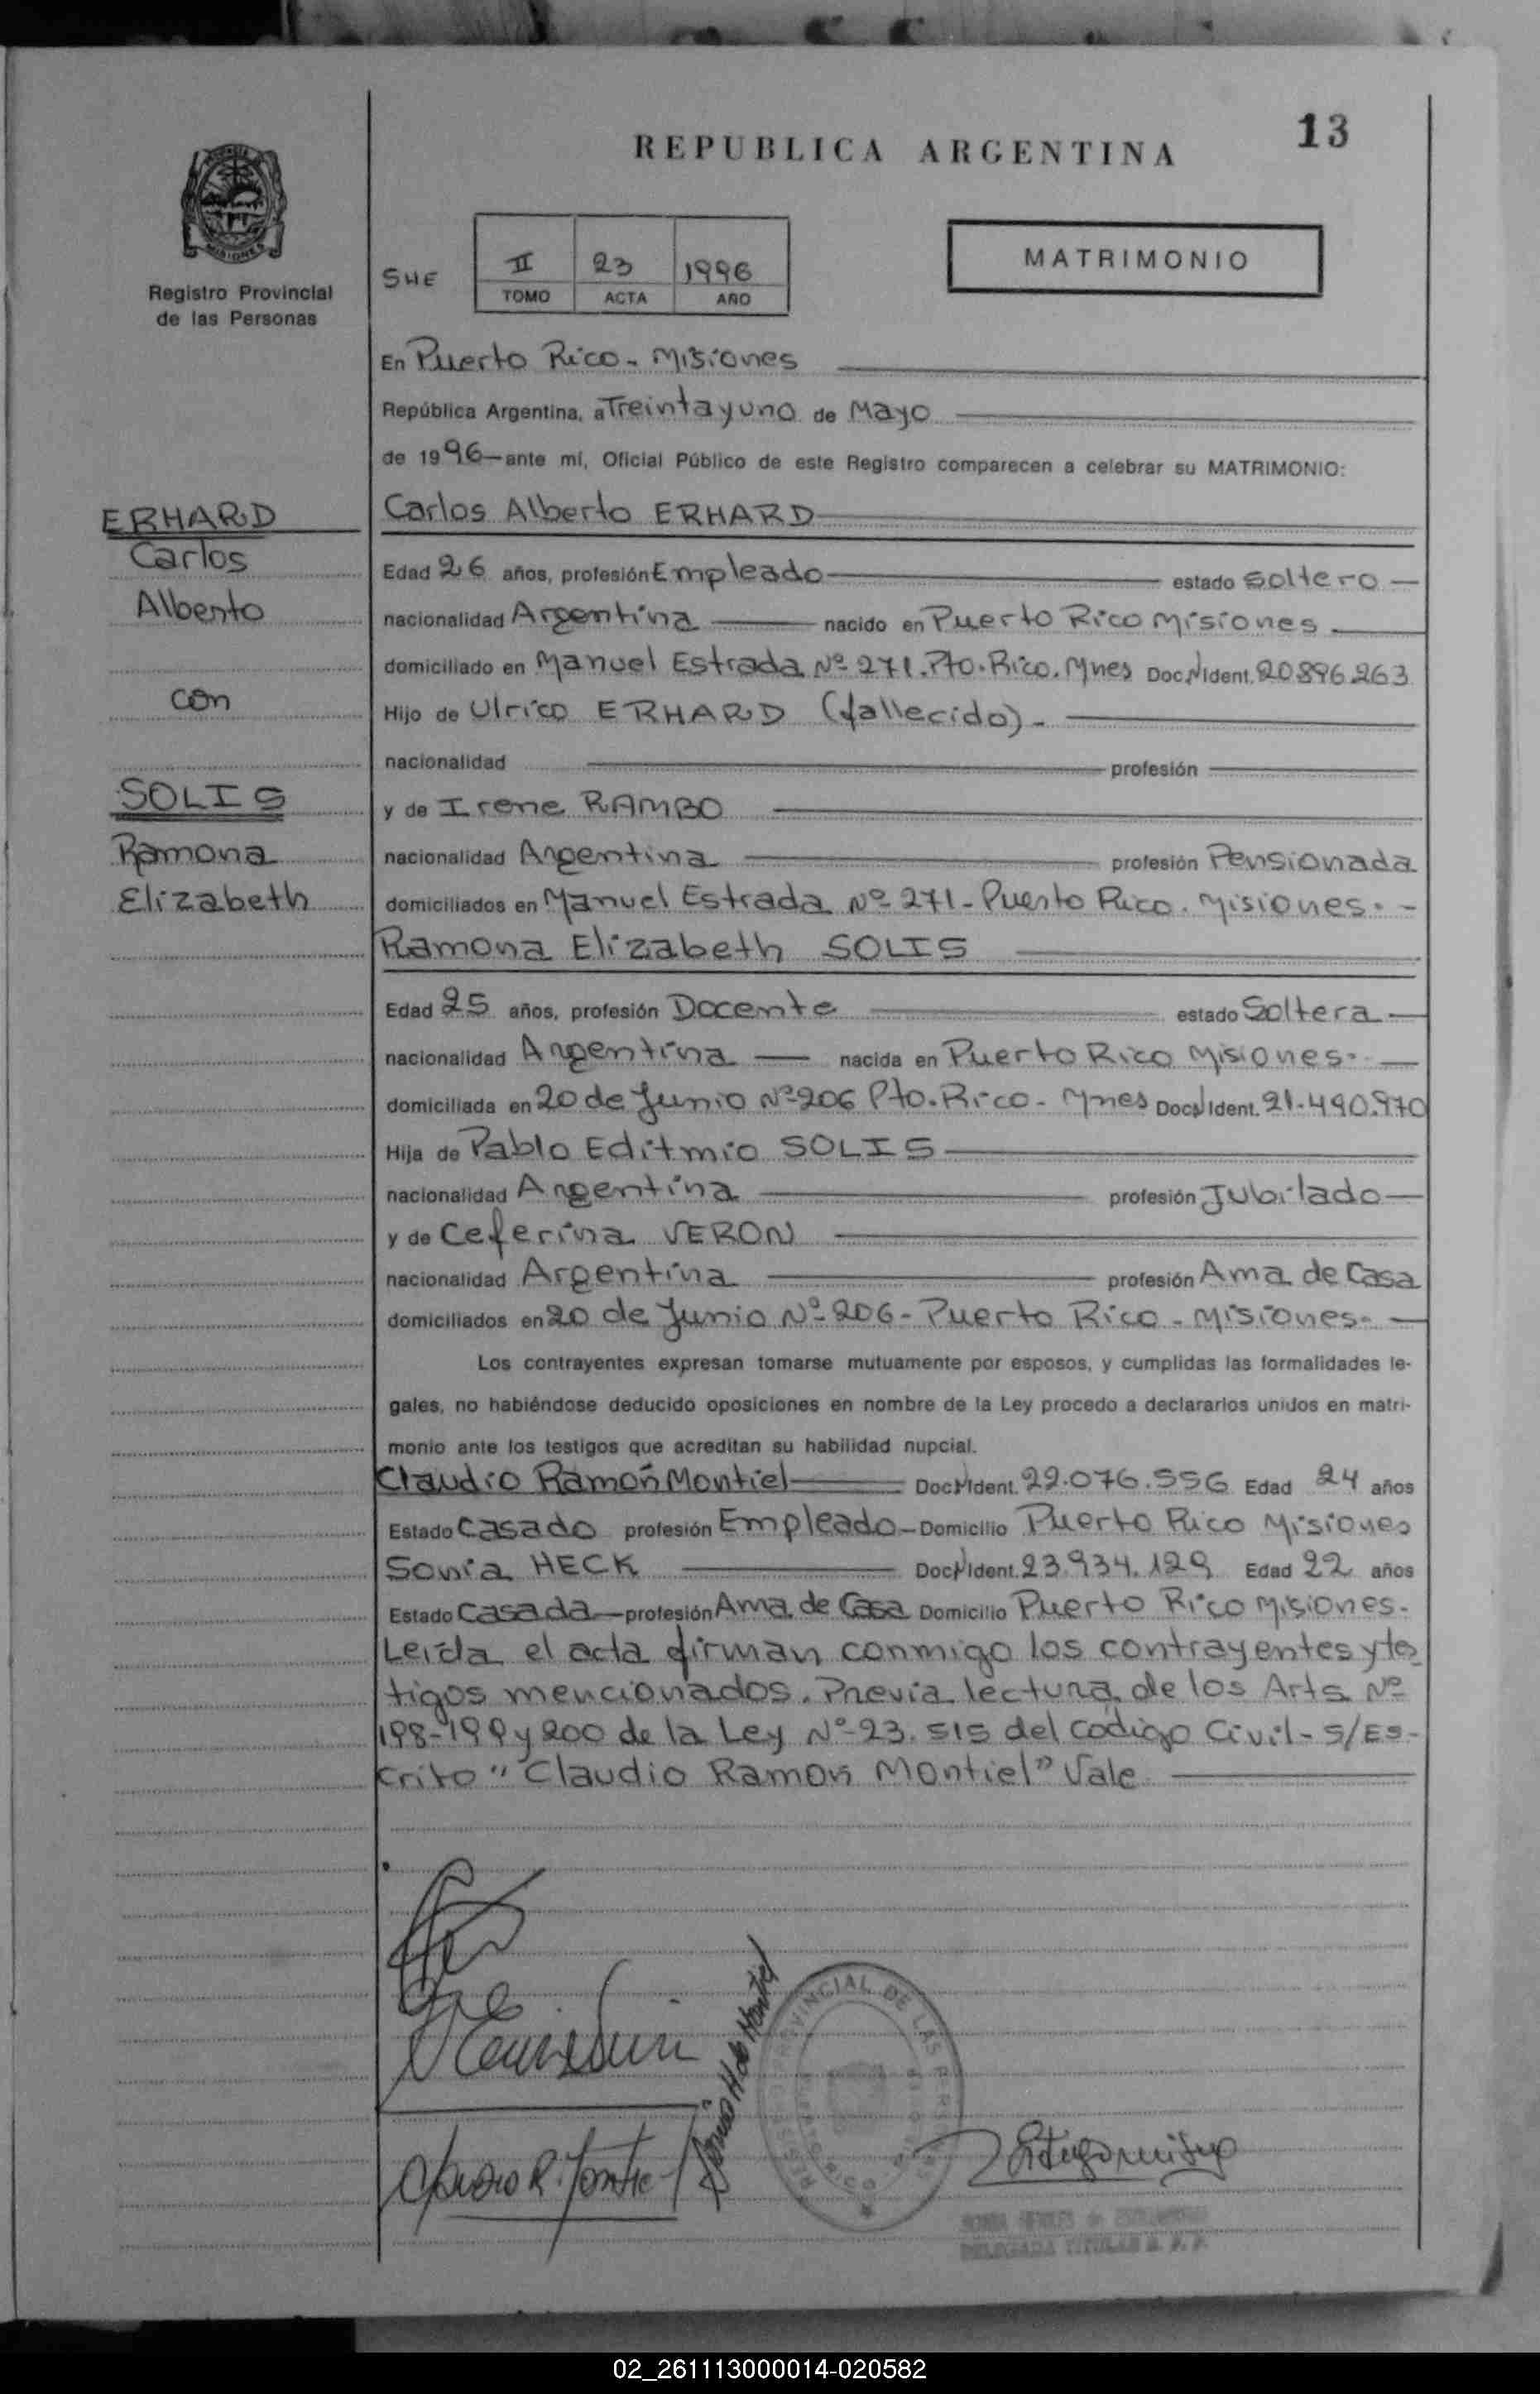 13
REPUBLICA ARGENTINA
MISIONES
Registro Provincial
de las Personas
SHE
II 23 1996
TOMO ACTA AÑO
MATRIMONIO
En Puerto Rico - Misiones
República Argentina, a Treinta y uno de Mayo
de 1996 — ante mí, Oficial Público de este Registro comparecen a celebrar su MATRIMONIO:
ERHARD
Carlos
Alberto
con
SOLIS
Ramona
Elizabeth
Carlos Alberto ERHARD
Edad 26 años, profesión Empleado estado soltero —
nacionalidad Argentina nacido en Puerto Rico Misiones
domiciliado en Manuel Estrada Nº 271. Pto. Rico. Mnes Doc.N Ident. 20.896.263
Hijo de Ulrico ERHARD (fallecido) -
nacionalidad profesión
y de Irene RAMBO
nacionalidad Argentina profesión Pensionada
domiciliados en Manuel Estrada Nº 271 - Puerto Rico. Misiones. -
Ramona Elizabeth SOLIS
Edad 25 años, profesión Docente estado Soltera —
nacionalidad Argentina — nacida en Puerto Rico Misiones. —
domiciliada en 20 de Junio Nº 206 Pto. Rico - Mnes Doc.N Ident. 21.490.970
Hija de Pablo Editmio SOLIS
nacionalidad Argentina profesión Jubilado —
y de Ceferina VERON
nacionalidad Argentina profesión Ama de Casa
domiciliados en 20 de Junio Nº 206 - Puerto Rico - Misiones. —
Los contrayentes expresan tomarse mutuamente por esposos, y cumplidas las formalidades le-
gales, no habiéndose deducido oposiciones en nombre de la Ley procedo a declararlos unidos en matri-
monio ante los testigos que acreditan su habilidad nupcial.
Claudio Ramón Montiel Doc.N Ident. 22.076.556 Edad 24 años
Estado Casado profesión Empleado - Domicilio Puerto Rico Misiones
Sonia HECK Doc.N Ident. 23.934.129 Edad 22 años
Estado Casada — profesión Ama de Casa Domicilio Puerto Rico Misiones.
Leída el acta firman conmigo los contrayentes y tes
tigos mencionados. Previa lectura de los Arts Nº
198-199 y 200 de la Ley Nº 23.515 del Código Civil - S/Es-
crito "Claudio Ramon Montiel" Vale
Sonia H de Montiel
REGISTRO PROVINCIAL DE LAS PERSONAS
PUERTO RICO
DELEGADA TITULAR R. P. P.
02_261113000014-020582